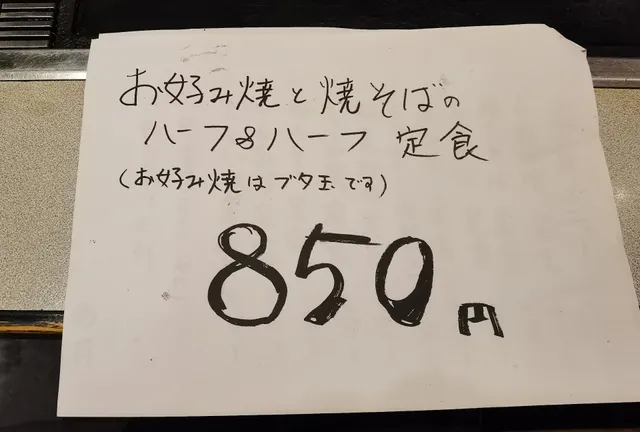 お好み焼と焼そばの
ハーフ&ハーフ 定食
(お好み焼はブタ玉です)
850円